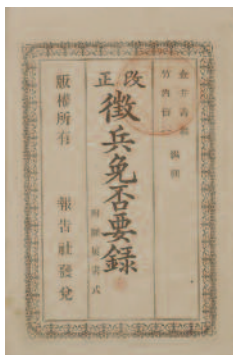 改正
徴兵免否要録
附願届書式
版權所有
報告社發兌